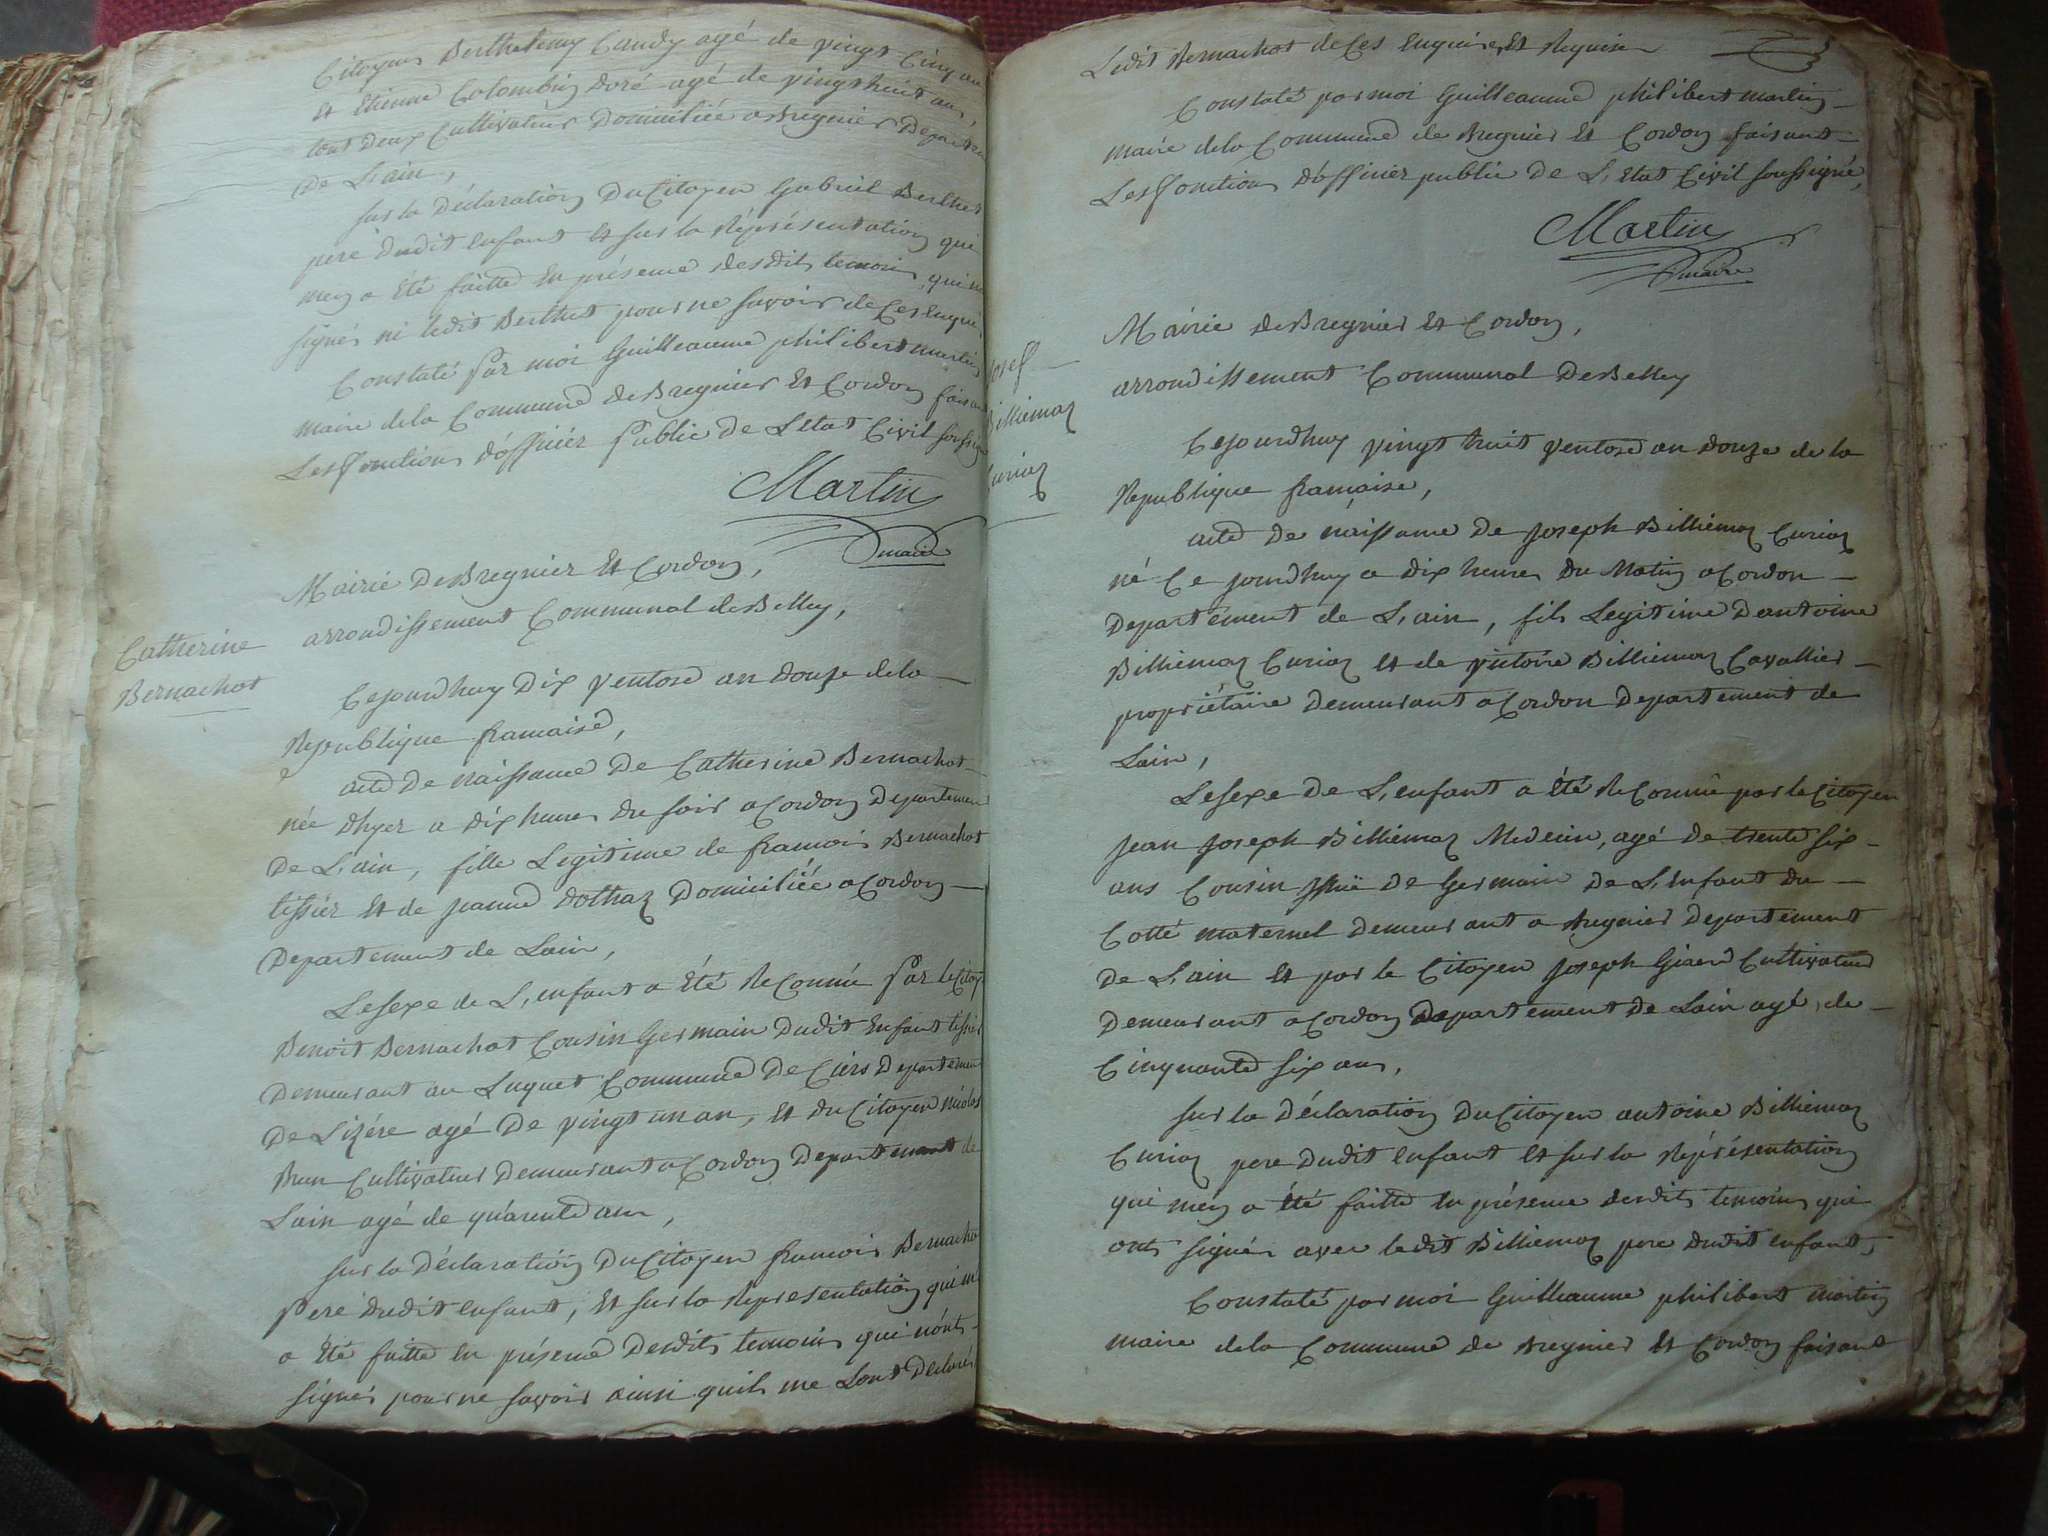 Citoyens Berthelemy Caudy agé de vingt cinq ans
et Etienne Colombin doré agé de vingt huit ans,
tout deux Cultivateurs Domiciliée a Bregnier Departem
De L'ain,
sur la Déclaration Du Citoyen Gabriel Berthet
pere dudit enfant et sur la Réprésentation qui
m'en a été faitte en présence desdits temoins qui n
signés ni ledit Berthet pour ne savoir de Ces enquis
Constaté Par moi Guilleaume philibert martin
maire dela Commune de Bregnier et Cordon faisant
Les fonctions d'officier Public de L'etat Civil soussigné
Martin
maire
Mairie De Bregnier et Cordon,
arrondissement Communal de Belley,
Catherine
Bernachot
Cejourdhuy Dix ventose an douze dela
Republique francaise,
acte De naissance De Catherine Bernachot
née dhyer a dix heures du soir a Cordon Departement
De L'ain, fille Legitime de francois Bernachot
tissier et de jeanne dothaz Domiciliée a Cordon
Departement de Lain,
Lesexe de L'enfant a été Reconnu Par le Citoy
Benoit Bernachot Cousin Germain Dudit Enfant tissier
Demeurant au Luquet Commune De Ciers Departement
De Lizére agé De vingt un an, et du Citoyen nicolas
Brun Cultivateur Demeurant a Cordon Departement de
Lain agé de quarente ans,
sur la Déclaration Du Citoyen francois Bernacho
Pere dudit enfant, et sur la Representation qui m
a été faitte en présence Desdits temoins qui nónt
signés pour ne savoir ainsi quils me Lont Declaré
Ledit Bernachot de Ces enquis et Requis
Constaté par moi Guilleaume philibert martin
maire dela Commune de Bregnier et Cordon faisant
Les fonctions d'officier public De L'Etat Civil soussigné,
Martin
maire
Mairie de Bregnier et Cordon,
arrondissement Communal De Belley
Josef
Billiemaz
Curiaz
Cejourdhuy vingt huit ventose an douze de la
Republique francaise,
acte De naissance de Joseph Billiemaz Curiaz
né Ce jourdhuy a dix heures Du Matin a Cordon
Departement de L'ain, fils Legitime Dantoine
Billiemaz Curiaz et de victoire Billiemaz Cavallier
propriétaire Demeurant a Cordon Departement de
Lain,
Lesexe De L'enfant a été Reconnû par le Citoyen
Jean Joseph Billiemaz Medecin, agé de trente six
ans Cousin issuë De Germain De L'Enfant Du
Cotté maternel Demeurant a Bregnier Département
De L'ain et par le Citoyen Joseph Girerd Cultivateur
Demeurant a Cordon Departement De Lain agé de
Cinquante six ans,
sur la Déclaration Du Citoyen antoine Billiemaz
Curiaz pere dudit enfant et sur la Réprésentation
qui m'en a été faitte en présence desdits temoins qui
ont signés avec ledit Billiemaz pere dudit enfant,
Constaté par moi Guilleaume philibert martin
maire dela Commune de Bregnier et Cordon faisant